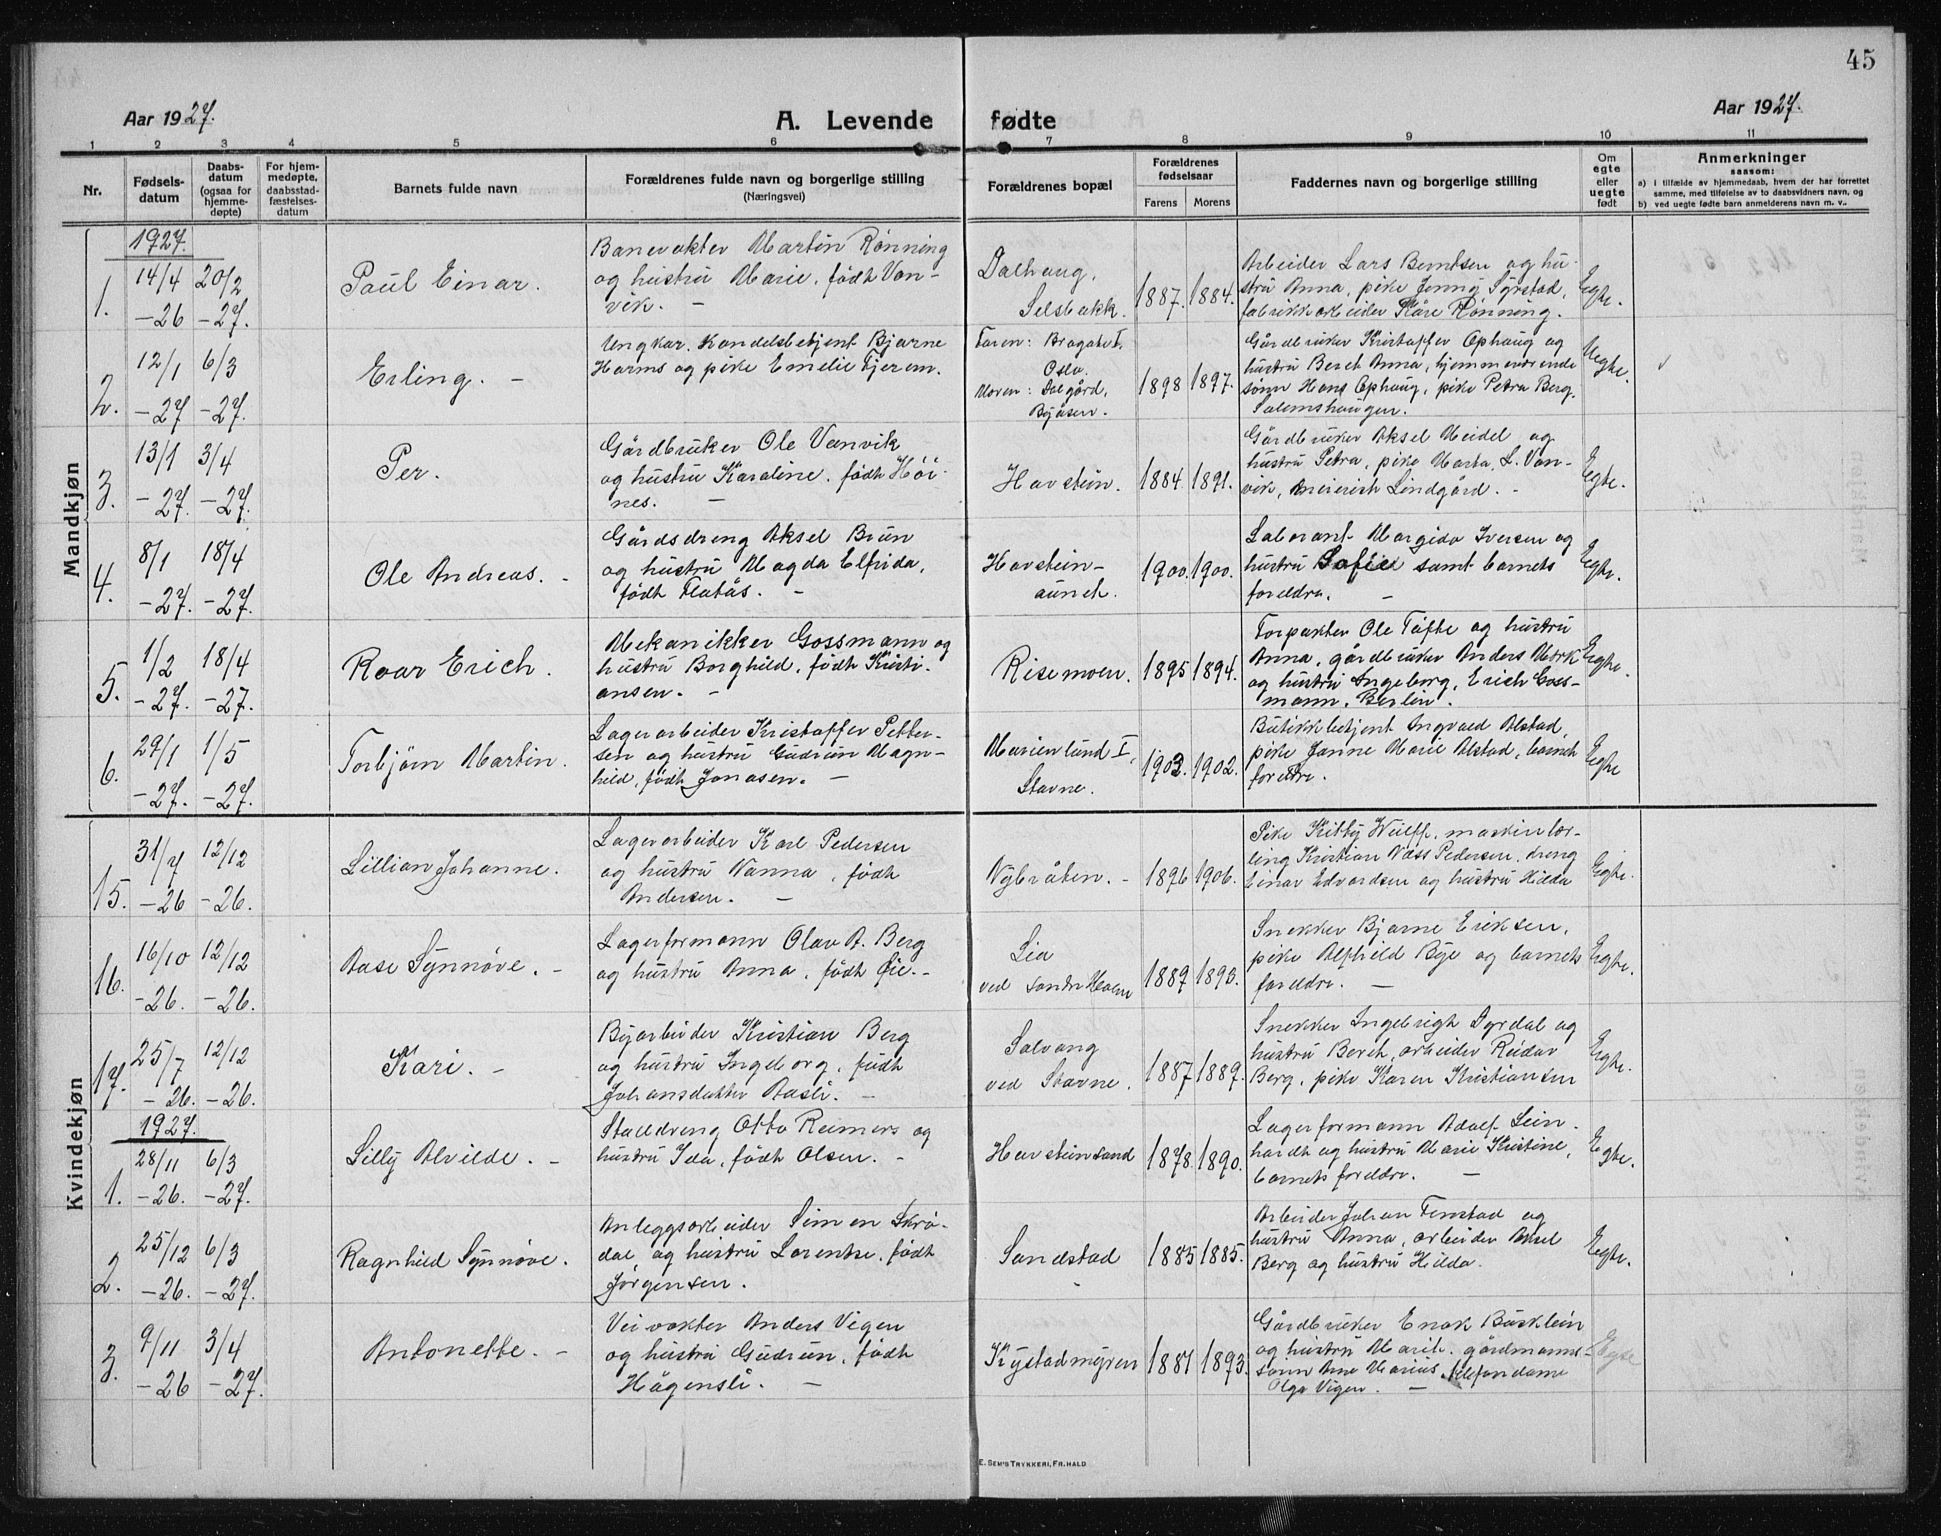 45
Aar 1927.
A. Levende fødte
Aar 1927.
1 2 3 4 5 6 7 8 9 10 11
Nr.
Fødsels-
datum
Daabs-
datum
(ogsaa for
hjemme-
døpte)
For hjem-
medøpte,
daabsstad-
fæstelses-
datum
Barnets fulde navn
Forældrenes fulde navn og borgerlige stilling
(Næringsvei)
Forældrenes bopæl
Forældrenes
fødselsaar
Farens Morens
Faddernes navn og borgerlige stilling
Om
egte
eller
uegte
født
Anmerkninger
saasom:
a) i tilfælde av hjemmedaab, hvem der har forrettet
samme, med tilføielse av to daabsvidners navn, og
b) ved uegte fødte barn anmelderens navn m. v..
Mandkjøn
1927.
1.
14/4
-26
20/2
-27.
Paul Einar.
Banevokter Martin Rønning
og hustru Marie, født Van-
vik. -
Dalhaug,
Selsbakk.
1887. 1884.
Arbeider Lars Berntsen og hu-
stru Anna, pike Jenny Syrstad,
fabrikkarbeider Kåre Rønning.
Egte.
2.
12/1
-27
6/3
-27.
Erling. -
Ungkar. Handelsbetjent Bjarne
Harms og pike Emelie Fjerem.
Faren: Bragate 1.
Oslo.
Moren: Dalgård,
Byåsen.
1898 1897.
Gårdbruker Kristoffer Ophaug og
hustru Beret Anna, hjemmeværende
sønn Hans Ophaug, pike Petra Berg,
Salemshaugen.
Uegte.
3.
13/1
-27.
3/4
-27.
Per.
Gårdbruker Ole Vanvik
og hustru Karoline, født Höi-
nes. -
Havstein.
1884 1891.
Gårdbruker Aksel Meidel og
hustru Petra, pike Marta L. Van-
vik, Lindgård. -
Egte.
4.
8/1
-27.
18/4
-27.
Ole Andreas. -
Gårdsdreng Aksel Brun
og hustru Magda Elfrida,
født Flatås. -
Havstein-
aunet.
1900. 1900.
Laborant Margido Iversen og
hustru Sofie samt barnets
foreldre. -
Egte.
5.
1/2
-27.
18/4
-27.
Roar Erich.
Mekanikker Gossmann og
hustru Borghild, født Kristi-
ansen. -
Risemoen.
1895 1894.
Forpakter Ole Tåfte og hustru
Anna, gårdbruker Anders Mörk
og hustru Ingeborg, Erich Goss-
mann, Berlin.
Egte.
6.
29/1
-27.
1/5
-27.
Torbjørn Martin.
Lagerarbeider Kristoffer Petter-
sen og hustru Gudrun Magn-
hild, født Jonasen. -
Marienlund I,
Stavne.
1903. 1902.
Butikkbetjent Ingvald Alstad,
pike Janne Marie Alstad, barnets
foreldre.
Egte
Kvindekjøn
15.
31/7
-26
12/12
-26.
Lillian Johanne.
Lagerarbeider Karl Pedersen
og hustru Nanna, født
Andersen. -
Nybråten. -
1896 1906.
Pike Kitty Wulff, maskinlær-
ling Kristian Næss Pedersen, dreng
Einar Edvardsen og hustru Hilda
Egte.
16.
16/10
-26.
12/12
-26.
Aase Synnøve. -
Lagerformann Olav A. Berg
og hustru Anna, født Øie. -
Lia
ved Søndre Hoem
1889 1890.
Snekker Bjarne Eriksen,
pike Alfhild Bye og barnets
foreldre. -
Egte.
17.
25/7
-26.
12/12
-26.
Kari. -
Byarbeider Kristian Berg
og hustru Ingeborg, født
Johansdatter Aasli. -
Solvang
ved Stavne.
1887 1889.
Snekker Ingebrigt Dyrdal og
hustru Beret, arbeider Reidar
Berg, pike Karen Kristiansen
Egte.
1927.
1.
28/11
-26.
6/3
-27.
Lilly Alvilde. -
Stalldreng Otto Reimers og
hustru Ida, født Olsen. -
Havsteinsand
1878. 1890.
Lagerformann Adolf Lein-
hardt og hustru Marie Kristine,
barnets foreldre. -
Egte.
2.
25/12
-26.
6/3
-27.
Ragnhild Synnøve.
Anleggsarbeider Simen Skrö-
dal og hustru Lorentse, født
Jørgensen.
Sandstad
1885 1885.
Arbeider Johan Femstad og
hustru Anna, arbeider Aksel
Berg og hustru Hilda.
Egte.
3.
9/11
-26
3/4
-27.
Antonette. -
Veivokter Anders Vigen
og hustru Gudrun, født
Hågensli. -
Kystadmyren
1881 1893.
Gårdbruker Enok Busklein
og hustru Marit, gårdmanns-
sønn Arne Marius, telefondame
Olga Vigen. -
Egte
E. SEM'S TRYKKERI, FR.HALD